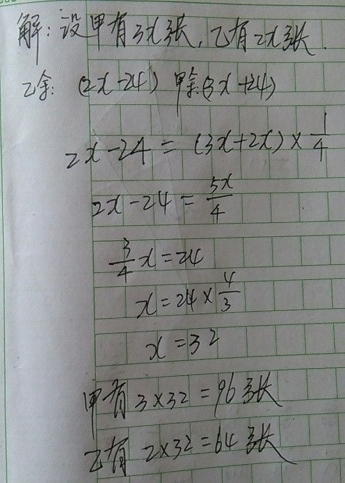 解：设甲有3x张，乙有2x张．
乙余：(2x-24) 甲余(3x+24)
2x-24=(3x+2x)×1/4
2x-24=5x/4
3/4x=24
x=24×4/3
x=32
甲有3×32=96张
乙有2×32=64张